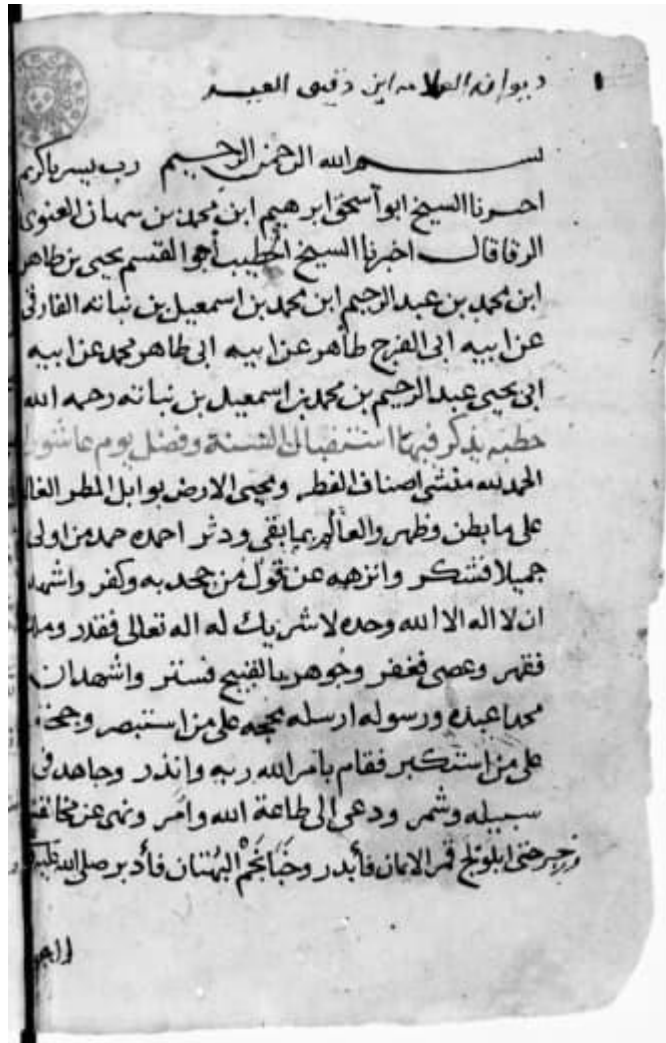 ديوان العلامه ابن دقيق العيد
بسم الله الرحمن الرحيم رب يسر ياكريم
اخبرنا الشيخ ابو اسحق ابرهيم ابن محمد بن سهان الغنوى
الرقا قال اخبرنا الشيخ الخطيب أبو القسم يحيى بن طاهر
ابن محمد بن عبد الرحيم ابن محمد بن اسمعيل بن نباته الفارقى
عن ابيه ابى الفرج طاهر عن ابيه ابى طاهر محمد عن ابيه
ابى يحيى عبد الرحيم بن محمد بن اسمعيل بن نباته رحمه الله
خطبه يذكر فيها استقبال السنة وفضل يوم عاشورا
الحمد لله منشى اصناف الفطر ومحيى الارض بوابل المطر
على ما بطن وظهر والعالم بما بقى ودثر احمده حمد من اولى
جميلا فشكر وانزهه عن قول من جحد به وكفر واشهد
ان لا اله الا الله وحده لا شريك له اله تعالى فقدر وملك
فقهر وعصى فغفر وجوهر بالقبيح فستر واشهد ان
محمدا عبده ورسوله ارسله بحجه على من استبصر وحجة
على من استكبر فقام بامر الله ربه وانذر وجاهد فى
سبيله وشمر ودعى الى طاعة الله وامر ونهى عن مخالفته
وزجر حتى ابلولج قمر الايمان فأبدر وخبا نجم البهتان فأدبر صلى الله عليه